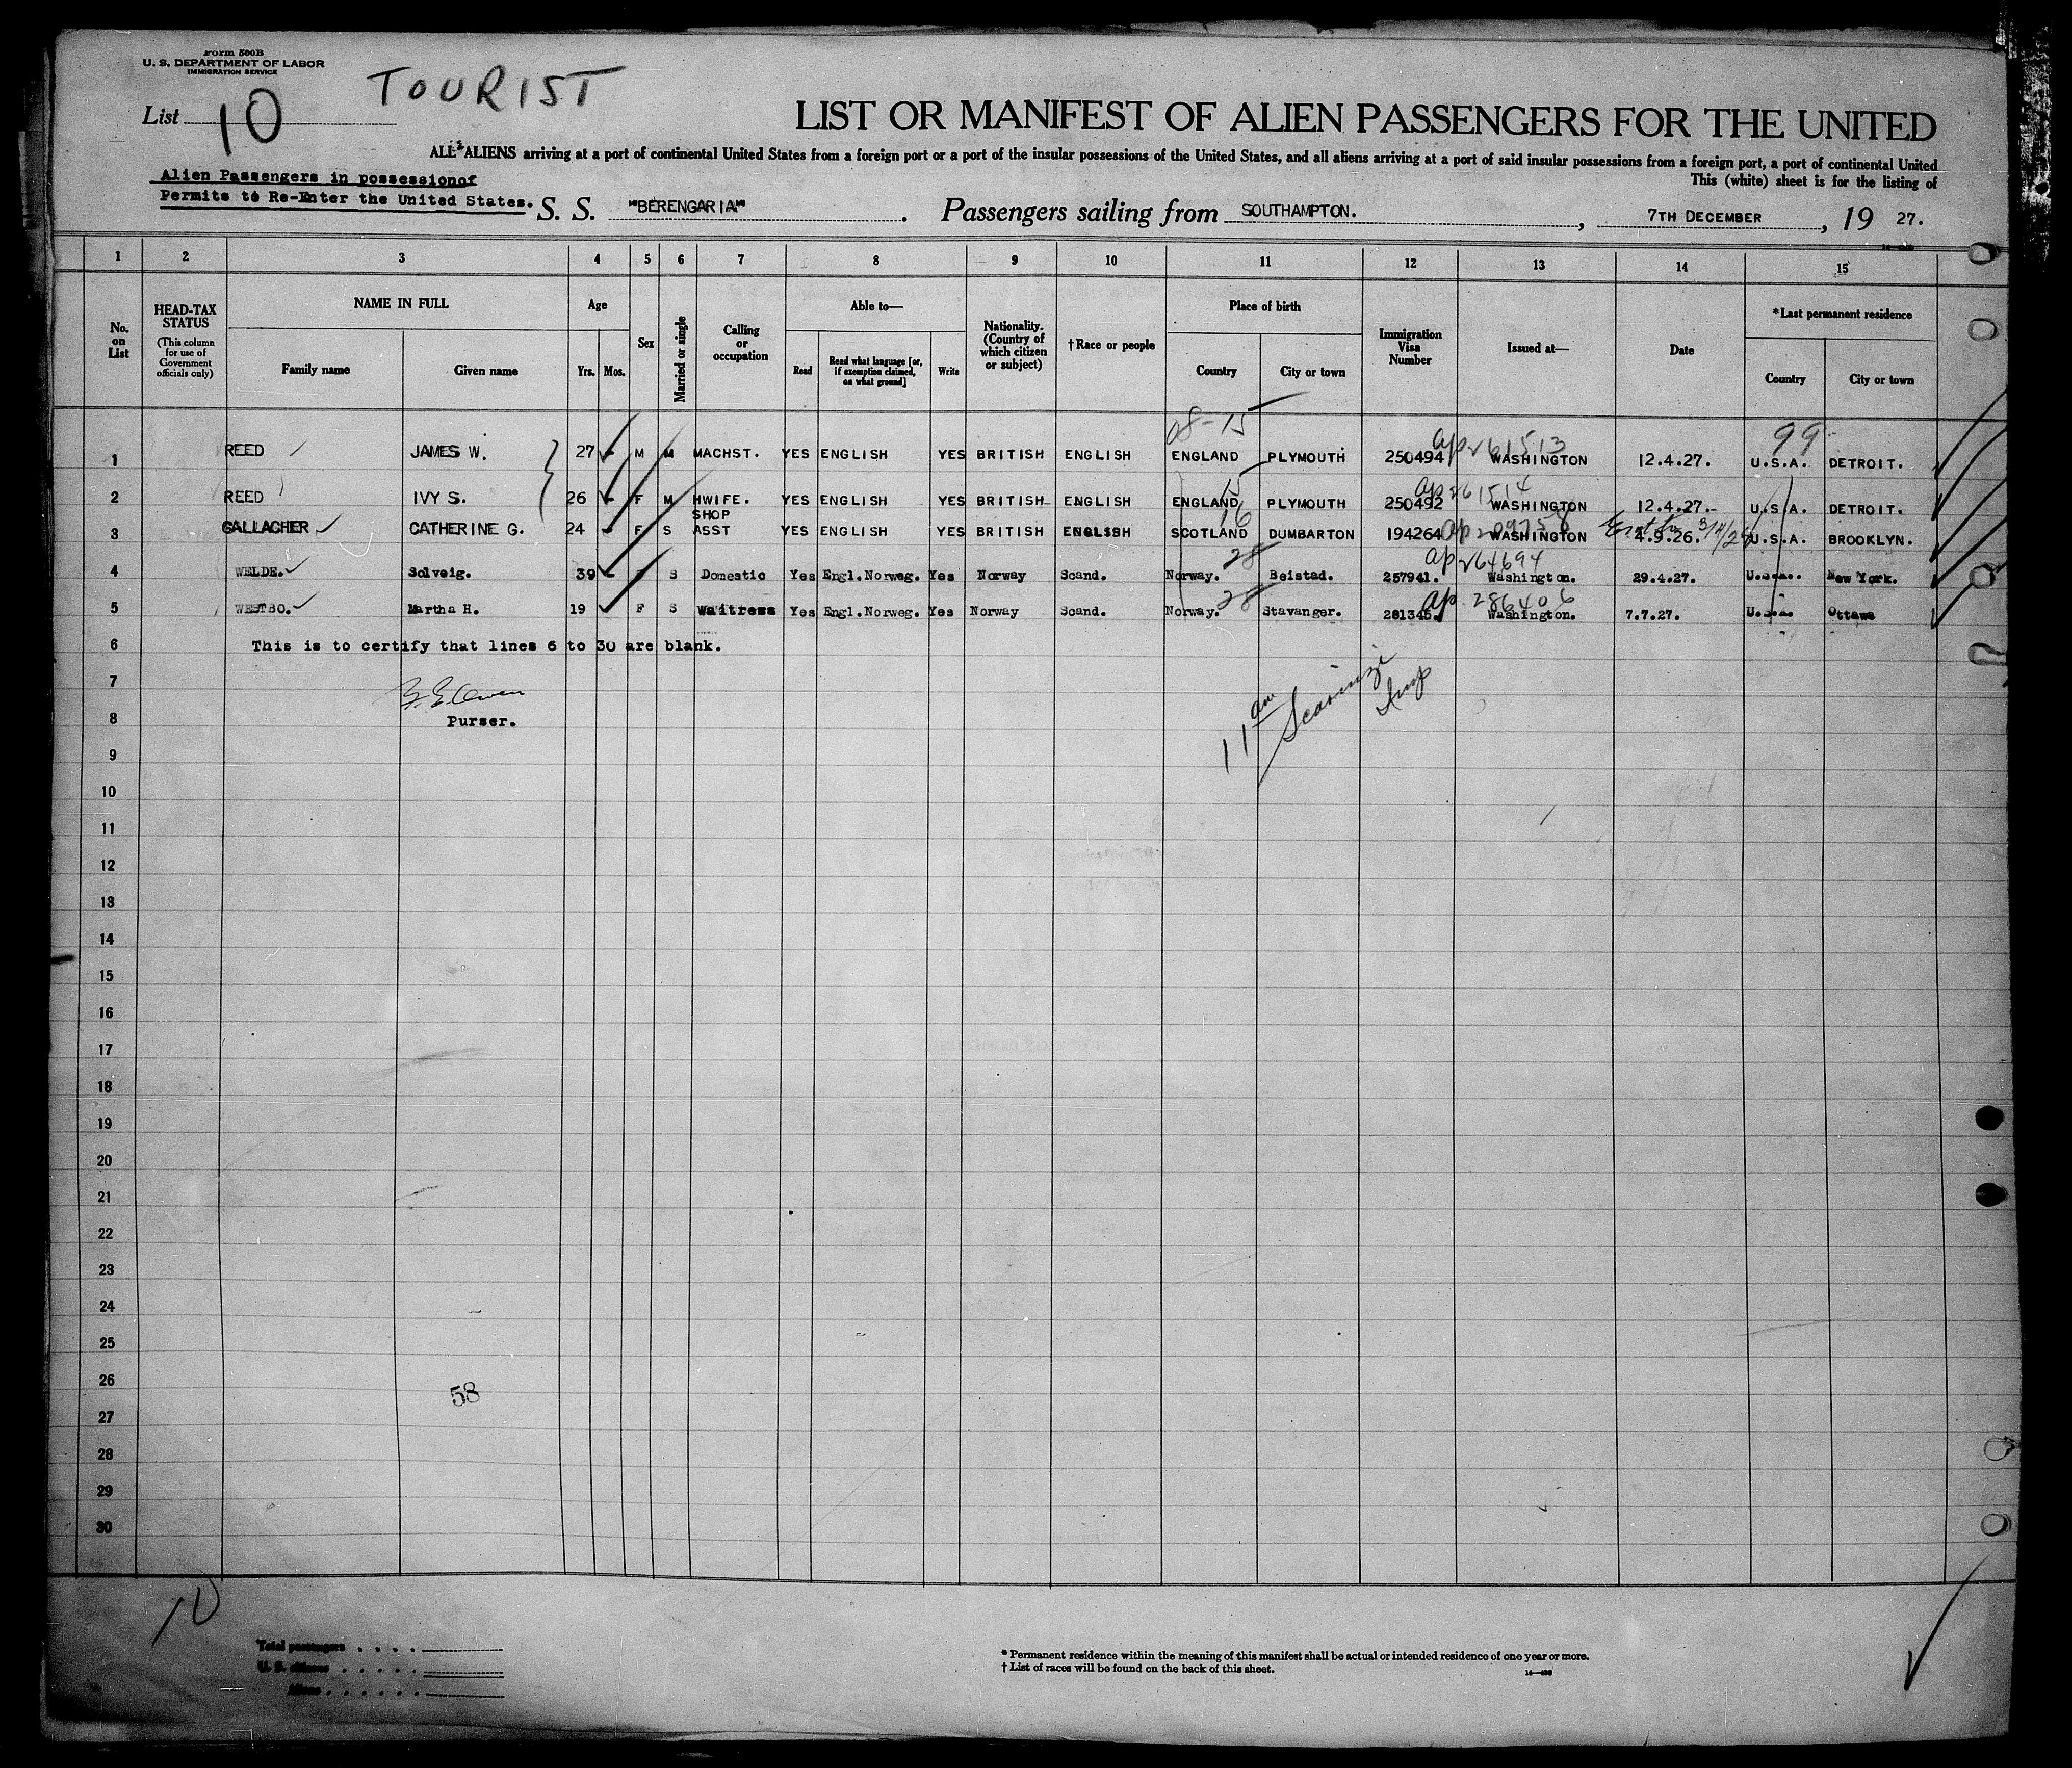 Form 500B
U. S. DEPARTMENT OF LABOR
IMMIGRATION SERVICE
TOURIST
List 10
LIST OR MANIFEST OF ALIEN PASSENGERS FOR THE UNITED
ALL ALIENS arriving at a port of continental United States from a foreign port or a port of the insular possessions of the United States, and all aliens arriving at a port of said insular possessions from a foreign port, a port of continental United
Alien Passengers in possessionof
This (white) sheet is for the listing of
Permits to Re-Enter the United States.
S. S. "BERENGARIA". Passengers sailing from SOUTHAMPTON., 7TH DECEMBER, 19 27.
1 2 3 4 5 6 7 8 9 10 11 12 13 14 15
No. on List
HEAD-TAX STATUS
(This column for use of Government officials only)
NAME IN FULL
Family name
Given name
Age
Yrs. Mos.
Sex
Married or single
Calling or occupation
Able to—
Read
Read what language [or, if exemption claimed, on what ground]
Write
Nationality. (Country of which citizen or subject)
†Race or people
Place of birth
Country
City or town
Immigration Visa Number
Issued at—
Date
*Last permanent residence
Country
City or town
08-15
99
1 REED JAMES W. 27 M M MACHST. YES ENGLISH YES BRITISH ENGLISH ENGLAND PLYMOUTH 250494 ap 261513 WASHINGTON 12.4.27. U.S.A. DETROIT.
15
2 REED IVY S. 26 F M HWIFE. YES ENGLISH YES BRITISH ENGLISH ENGLAND PLYMOUTH 250492 ap 261514 WASHINGTON 12.4.27. U.S.A. DETROIT.
16
3 GALLAGHER CATHERINE G. 24 F S SHOP ASST YES ENGLISH YES BRITISH ENGLISH SCOTLAND DUMBARTON 194264 ap WASHINGTON 4.9.26. U.S.A. BROOKLYN.
28
4 WELDE. Solveig. 39 F S Domestic Yes Engl.Norweg. Yes Norway Scand. Norway. Beistad. 257941. ap 264694 Washington. 29.4.27. U.S.A. New York.
28
5 WESTBO. Martha H. 19 F S Waitress Yes Engl.Norweg. Yes Norway Scand. Norway. Stavanger. 281345. ap 286406 Washington. 7.7.27. U.S.A. Ottawa
6 This is to certify that lines 6 to 30 are blank.
7
8 Purser.
9
10
11
12
13
14
15
16
17
18
19
20
21
22
23
24
25
26
58
27
28
29
30
10
Total passengers
U. S. citizens
Aliens
* Permanent residence within the meaning of this manifest shall be actual or intended residence of one year or more.
† List of races will be found on the back of this sheet.